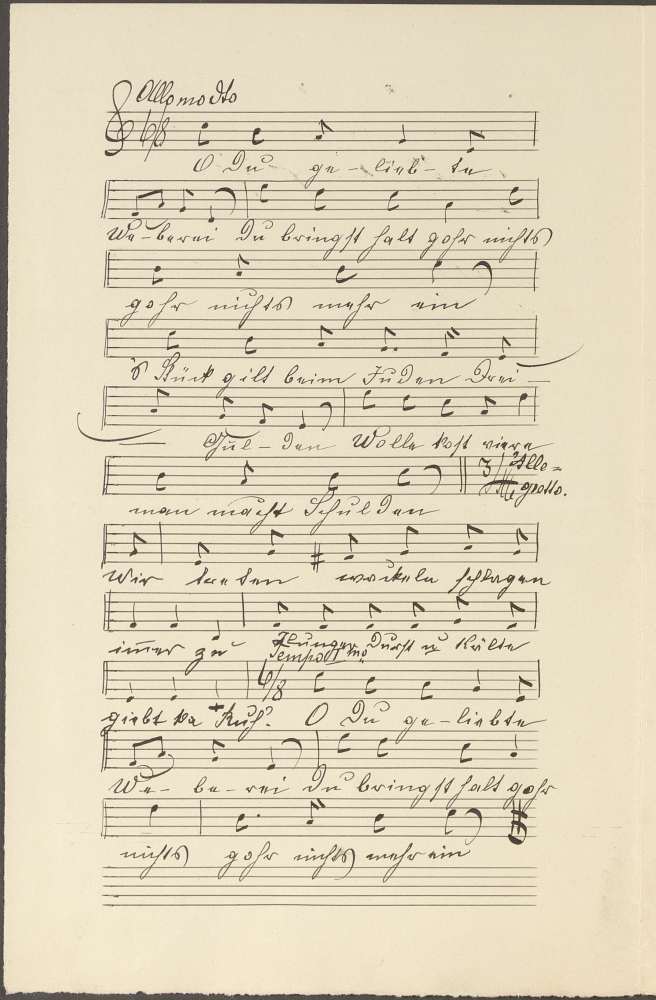 Allo modto
6/8
O Du ge-lieb-te
We-berei Du bringst halt gohr nichts
gohr nichts mehr ein
's Stück gilt beim Juden Drei
Gul-den Wolle kost viere
man macht Schulden
3/4 Alle=
gretto.
Wir treten wackeln schlagen
immer zu Hunger Durst u Kälte
Tempo I mo
6/8
giebt ka Ruh'. O Du ge-liebte
We- be-rei Du bringst halt gohr
nichts gohr nichts mehr ein